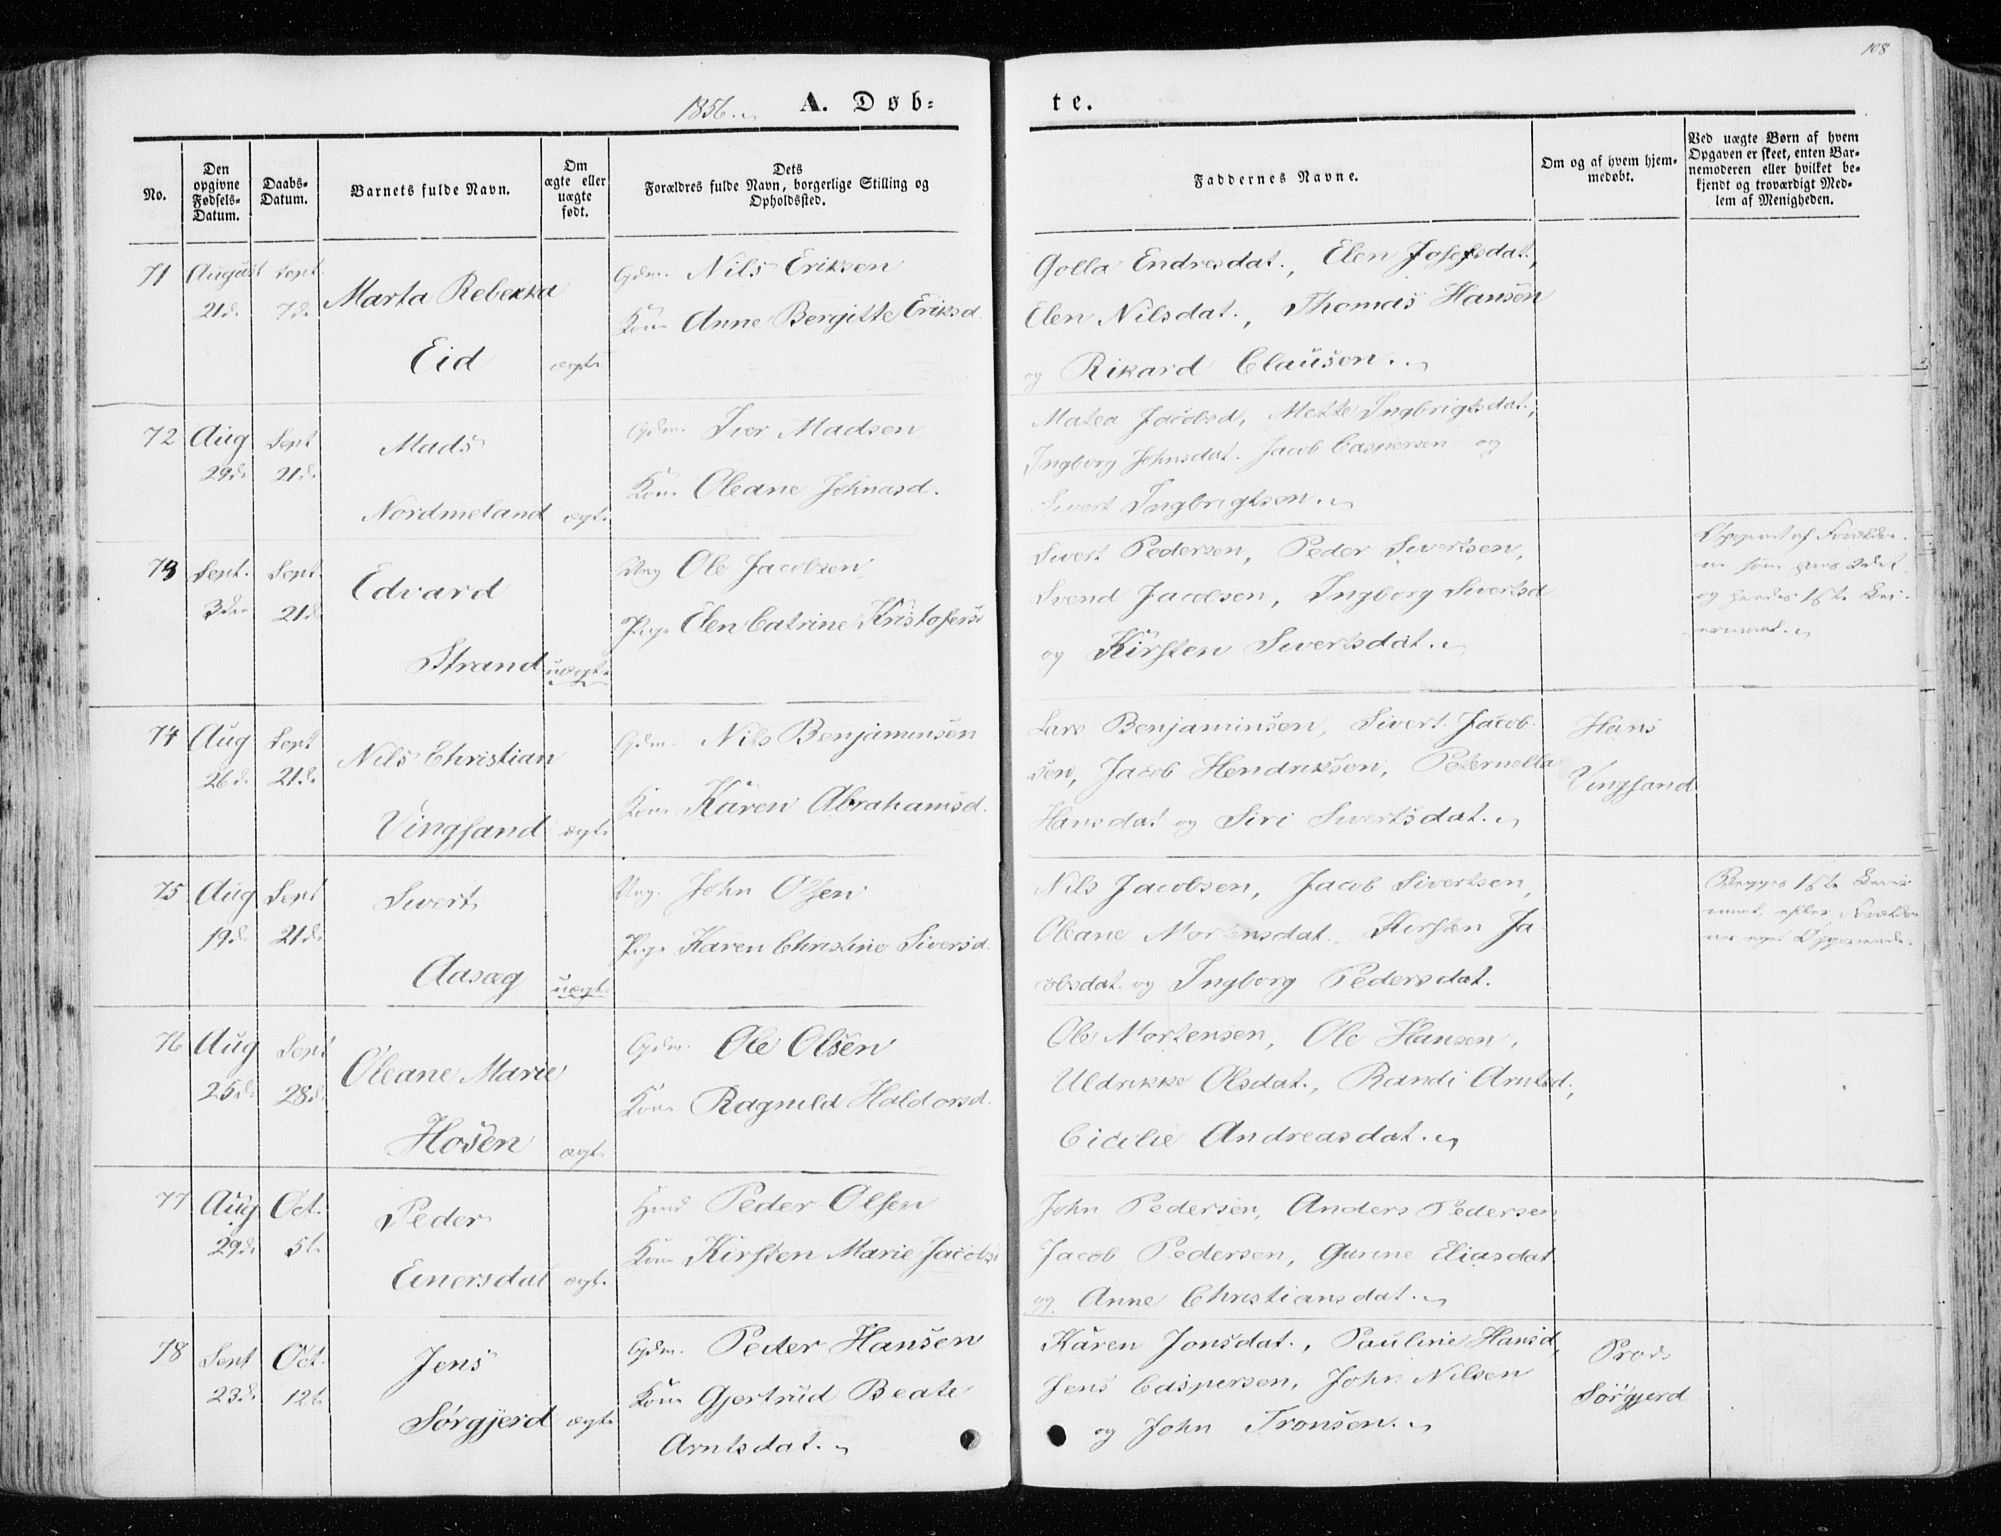 108
1856.
A. Døb=
te.
No.
Den opgivne Fødsels-Datum.
Daabs-Datum.
Barnets fulde Navn.
Om ægte eller uægte født.
Dets Forældres fulde Navn, borgerlige Stilling og Opholdssted.
Faddernes Navne.
Om og af hvem hjemmedøbt.
Ved uægte Børn af hvem Opgaven er skeet, enten Barnemoderen eller hvilket bekjendt og troværdigt Medlem af Menigheden.
71 August Sept. Gdm. Nils Eriksen
21d. 7d. Marta Rebekka
Kone Anne Bergitte Eriksd.
Eid ægte
Golla Endresdat., Elen Josefsdat.,
Elen Nilsdat., Thomas Hansen
og Rikard Clausen.
72 Aug Sept Mads Gdm. Iver Madsen
29d. 21d.
Nordmeland ægte Kone Oleane Johnasd.
Matea Jacobsd, Mette Ingbrigtsdat.,
Ingborg Johnsdat. Jacob Caspersen og
Sivert Ingbrigtsen.
73 Sept. Sept. Edvard Ung Ole Jacobsen
3die 21d.
Pige Elen Catrine Kristofersd
Strand uægte
Sivert Pedersen, Peder Sivertsen,
Svend Jacobsen, Ingborg Sivertsd
og Kirsten Sivertsdat.
74 Aug Sept Nils Christian Gdm. Nils Benjaminsen
26d. 21d.
Vingsand ægte Kone Karen Abrahamsd.
Lars Benjaminsen, Sivert Jacob-
sen, Jacob Hendriksen, Peternella
Hansdat og Siri Sivertsdat.
Hans
Vingsand
75 Aug Sept Sivert Ung. John Olsen
19d. 21d.
Aasæg uægte Pige Karen Christine Siversd.
Nils Jacobsen, Jacob Sivertsen,
Oleane Mortensdat., Kirsten Ja-
cobsdat. og Ingborg Pedersdat.
76 Aug Sept Oleane Marie Gdm. Ole Olsen
25d. 28d.
Hosen ægte Kone Ragnild Haldorsd.
Ole Mortensen, Ole Hansen,
Uldrikke Olsdat., Randi Arntsd.,
Cicilie Andreasdat.
77 Aug Oct. Peder Hmd Peder Olsen
29d. 5t.
Einersdal ægte Kone Kirsten Marie Jacobsd
John Pedersen, Anders Pedersen
Jacob Pedersen, Gunne Eliasdat.
og Anne Christiansdat.
78 Sept Oct. Jens Gdm. Peder Hansen
23d. 12t.
Sørgjerd ægte Kone Gjertrud Beate
Arntsdat.
Karen Jonsdat., Pauline Hansd,
Jens Caspersen, John Nilsen
og John Tronsen.
Sørgjerd